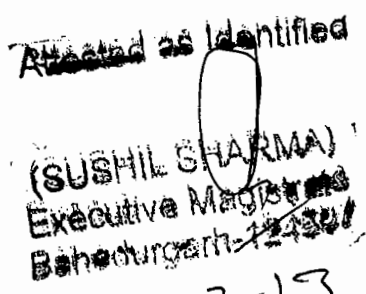 Attested as Identified
(SUSHIL SHARMA)
Executive Magistrate
Bahadurgarh-